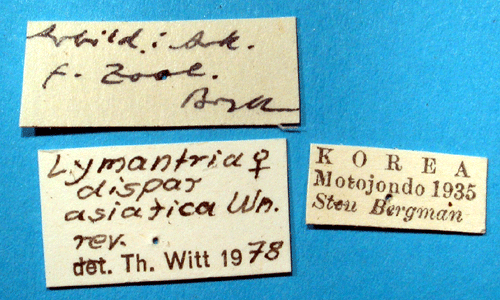 f. Zool.
Lymantria ♀
dispar
asiatica Wn.
rev.
det. Th. Witt 1978
KOREA
Motojondo 1935
Sten Bergman